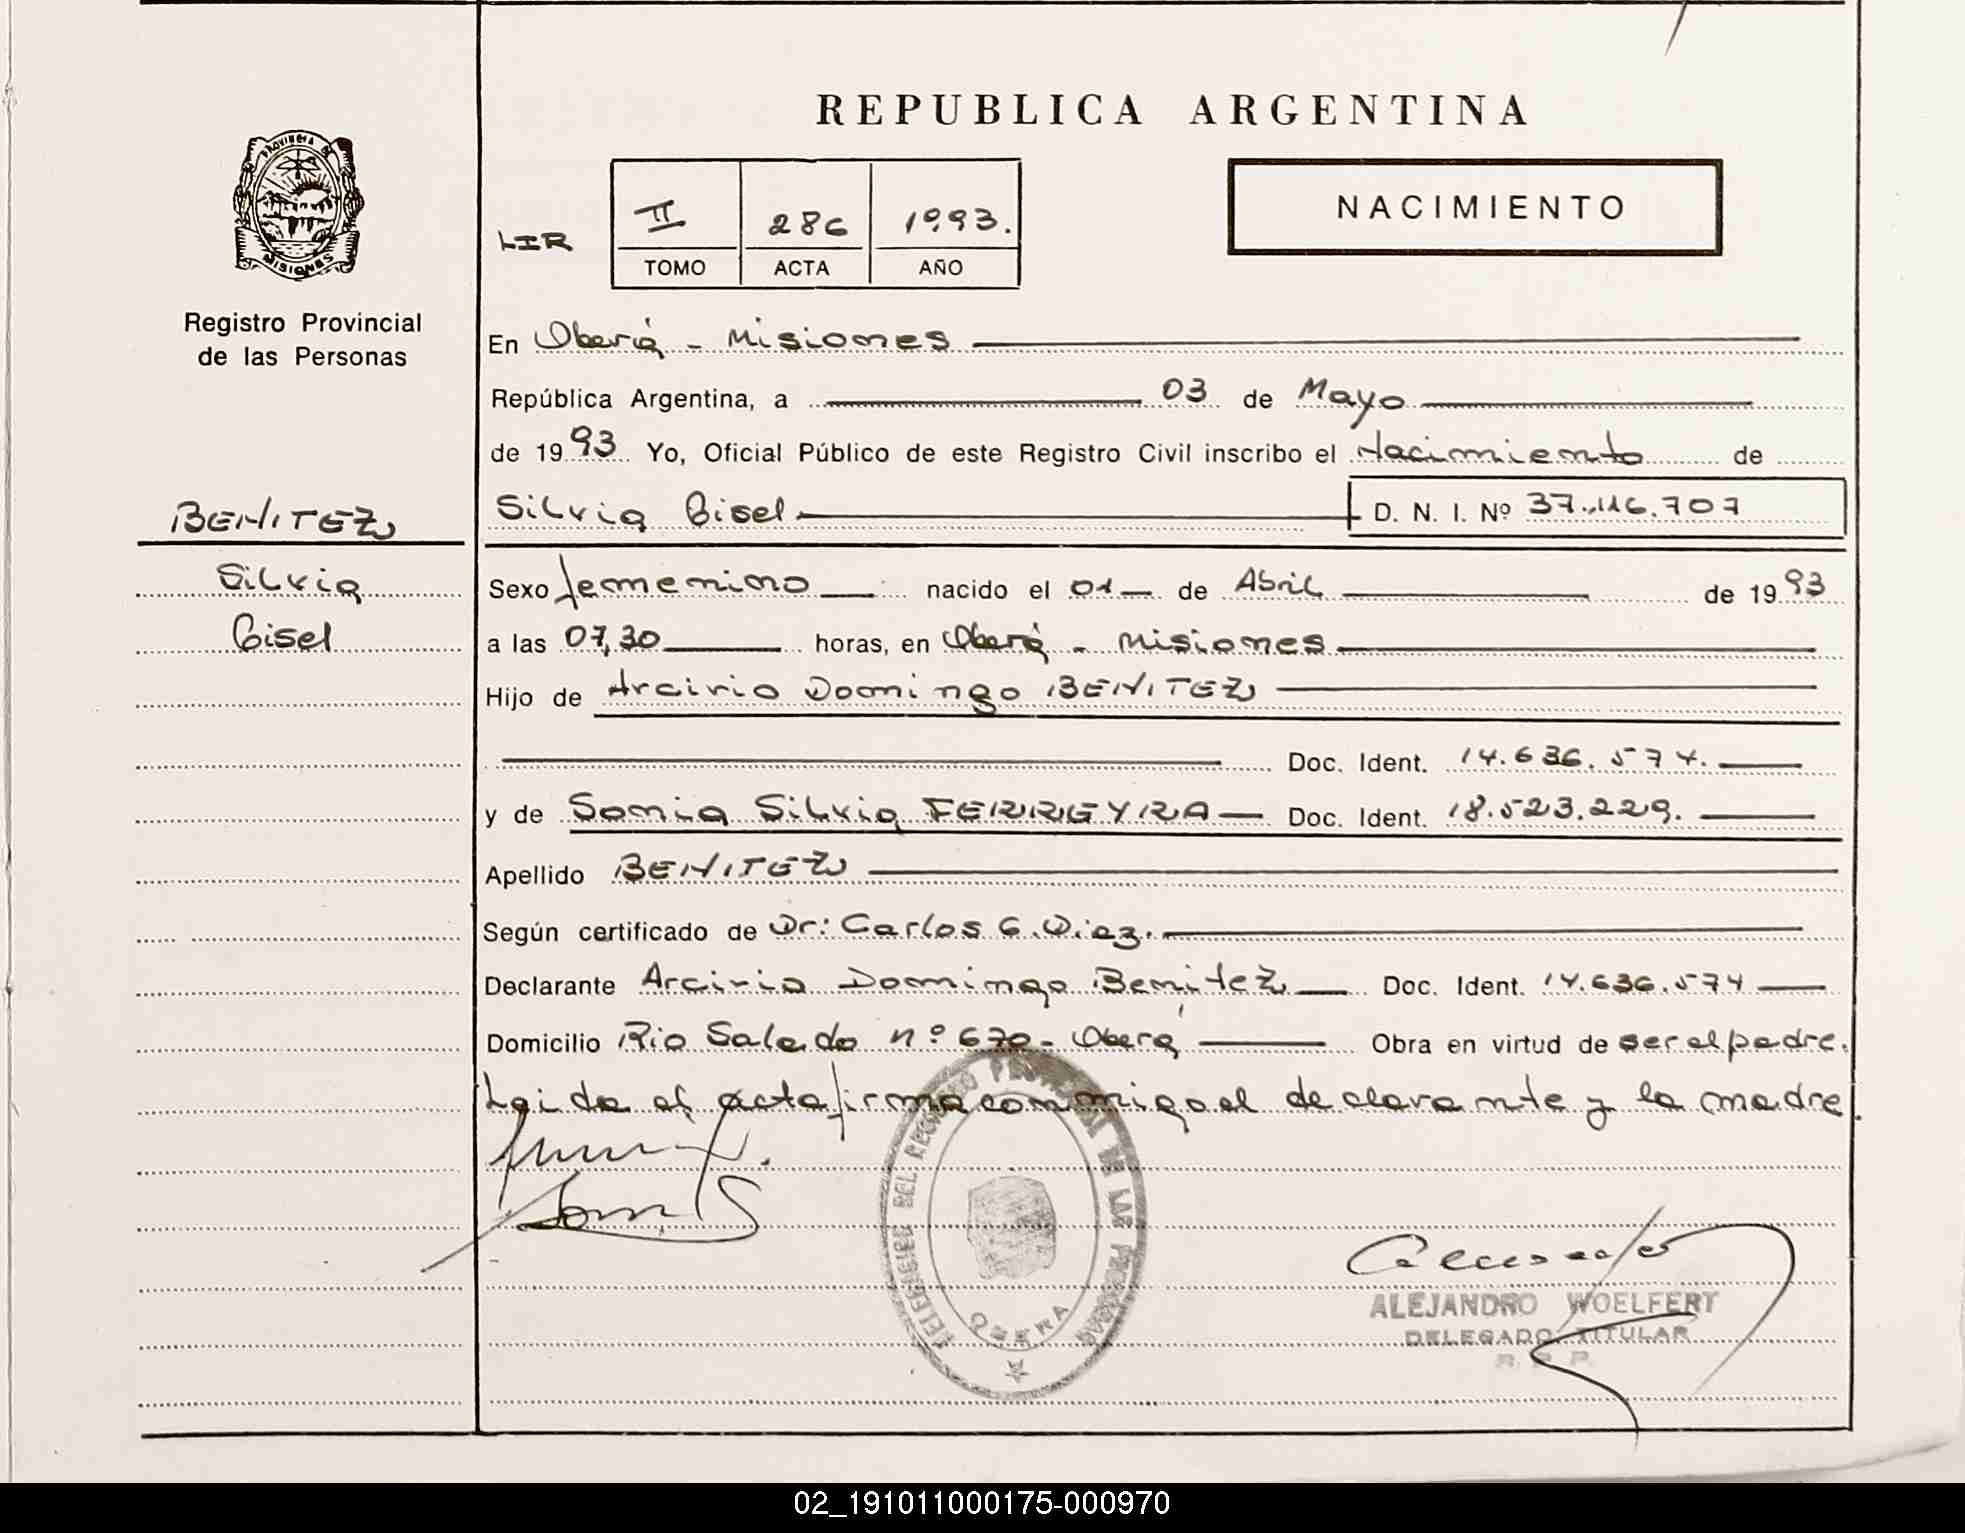 REPUBLICA ARGENTINA
PROVINCIA DE
MISIONES
Registro Provincial
de las Personas
LIR
II 286 1993.
TOMO ACTA AÑO
NACIMIENTO
En Oberá - Misiones
República Argentina, a 03 de Mayo
de 1993 Yo, Oficial Público de este Registro Civil inscribo el Nacimiento de
BENITEZ
Silvia Gisel D. N. I. Nº 37.116.707
Silvia
Gisel
Sexo femenino nacido el 01 de Abril de 1993
a las 07,30 horas, en Oberá - Misiones
Hijo de Arcirio Domingo BENITEZ
Doc. Ident. 14.636.574.
y de Sonia Silvia FERREYRA Doc. Ident. 18.523.229.
Apellido BENITEZ
Según certificado de Dr: Carlos G. Diez.
Declarante Arcirio Domingo Benitez Doc. Ident. 14.636.574
Domicilio Rio Salado nº 670 - Oberá Obra en virtud de ser el padre.
Leida el acta firma conmigo el declarante y la madre.
DEL REGISTRO PROVINCIAL DE LAS PERSONAS
OBERA
ALEJANDRO WOELFERT
DELEGADO TITULAR
R. P. P.
02_191011000175-000970